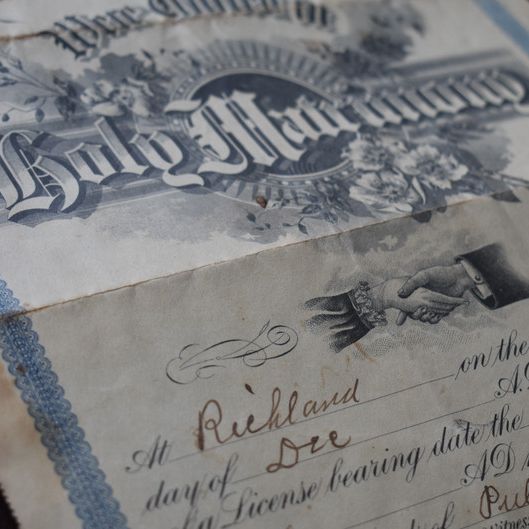 Were United In
Holy Matrimony
At Richland on the
day of Dec A.D.
by License bearing date the
A.D.
of Pul
witnes